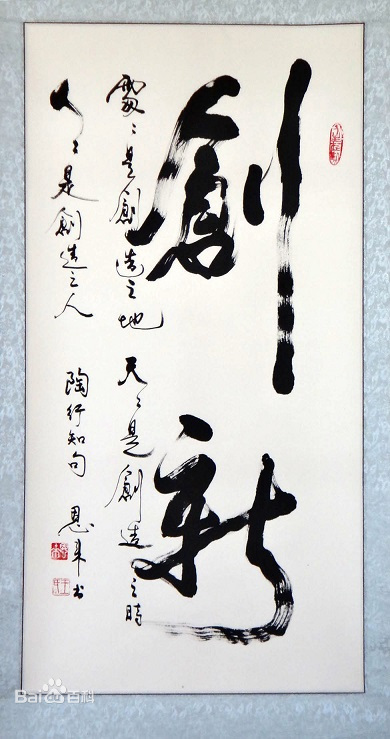 創新
處〻是創造之地 天〻是創造之時
人〻是創造之人
陶行知句 恩来书
Bai百科